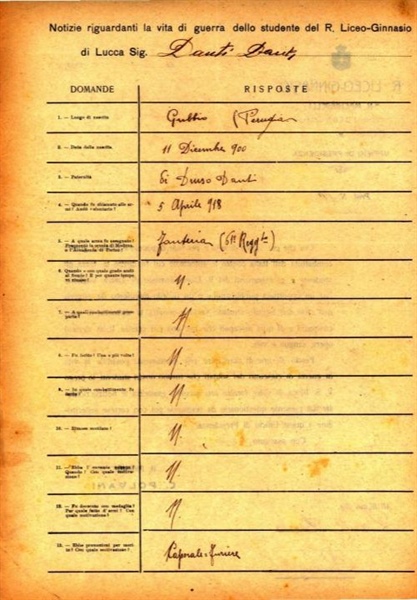 Notizie riguardanti la vita di guerra dello studente del R. Liceo-Ginnasio
di Lucca Sig. Danti Dante
DOMANDE
RISPOSTE
1. — Luogo di nascita
Gubbio (Perugia)
2. — Data della nascita
11 Dicembre 900
3. — Paternità
di Druso Danti
4. — Quando fu chiamato alle armi? Andò volontario?
5 Aprile 918
5. — A quale arma fu assegnato?
Frequentò la scuola di Modena,
o l'Accademia di Torino?
Fanteria (
6. — Quando e con quale grado andò
al fronte? E per quanto tempo
vi rimase?
N.
7. — A quali combattimenti prese
parte?
N.
8. — Fu ferito? Una o più volte?
N.
9. — In quale combattimento fu
ferito?
N.
10. — Rimase mutilato?
N.
11. — Ebbe
Quando? Con quale motivazione?
N.
12. — Fu decorato con medaglia?
Per quale fatto d'armi? Con
quale motivazione?
N.
13. — Ebbe promozioni per merito? Con quale motivazione?
Caporale-Furiere